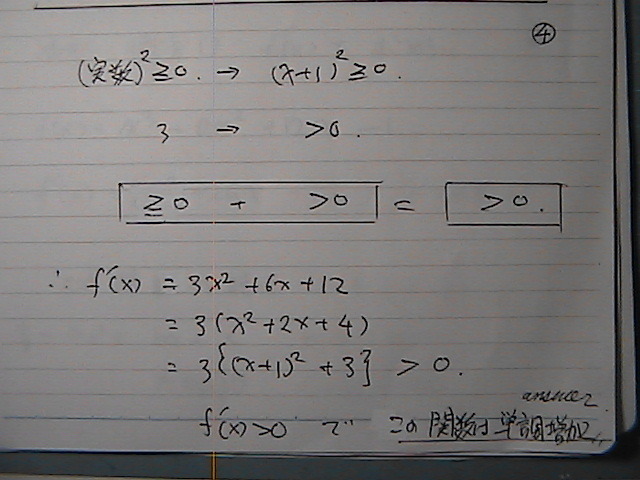 ④
(実数)² ≧0. → (x+1)² ≧0.
3 → >0.
≧0 + >0 = >0.
∴ f'(x) = 3x² + 6x + 12
= 3(x² + 2x + 4)
= 3{(x+1)² + 3} > 0.
answer
f'(x)>0 で この関数は単調増加